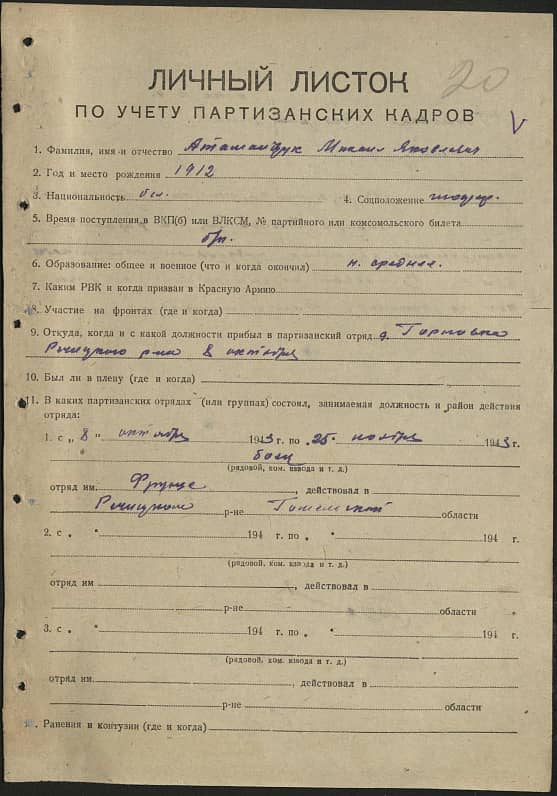 20
ЛИЧНЫЙ ЛИСТОК
ПО УЧЕТУ ПАРТИЗАНСКИХ КАДРОВ
V
1. Фамилия, имя и отчество Аташчук Михаил Яковлевич
2. Год и место рождения 1912
3. Национальность бел. 4. Соцположение
5. Время поступления в ВКП(б) или ВЛКСМ, № партийного или комсомольского билета
б/п.
6. Образование: общее и военное (что и когда окончил) н. среднее.
7. Каким РВК и когда призван в Красную Армию
8. Участие на фронтах (где и когда)
9. Откуда, когда и с какой должности прибыл в партизанский отряд д. Горновка
Речицкого р-на 8 октября
10. Был ли в плену (где и когда)
11. В каких партизанских отрядах (или группах) состоял, занимаемая должность и район действия
отряда:
1. с „ 8 " октября 1943 г. по „ 25 " ноября 1943 г.
боец
(рядовой, ком. взвода и т. д.)
отряд им. Фрунзе, действовал в
Речицком р-не Гомельской области
2. с „ " 194 г. по „ " 194 г.
(рядовой, ком. взвода и т. д.)
отряд им, действовал в
р-не области
3. с „ " 194 г. по „ " 194 г.
(рядовой, ком. взвода и т. д.)
отряд им., действовал в
р-не области
12. Ранения и контузии (где и когда)